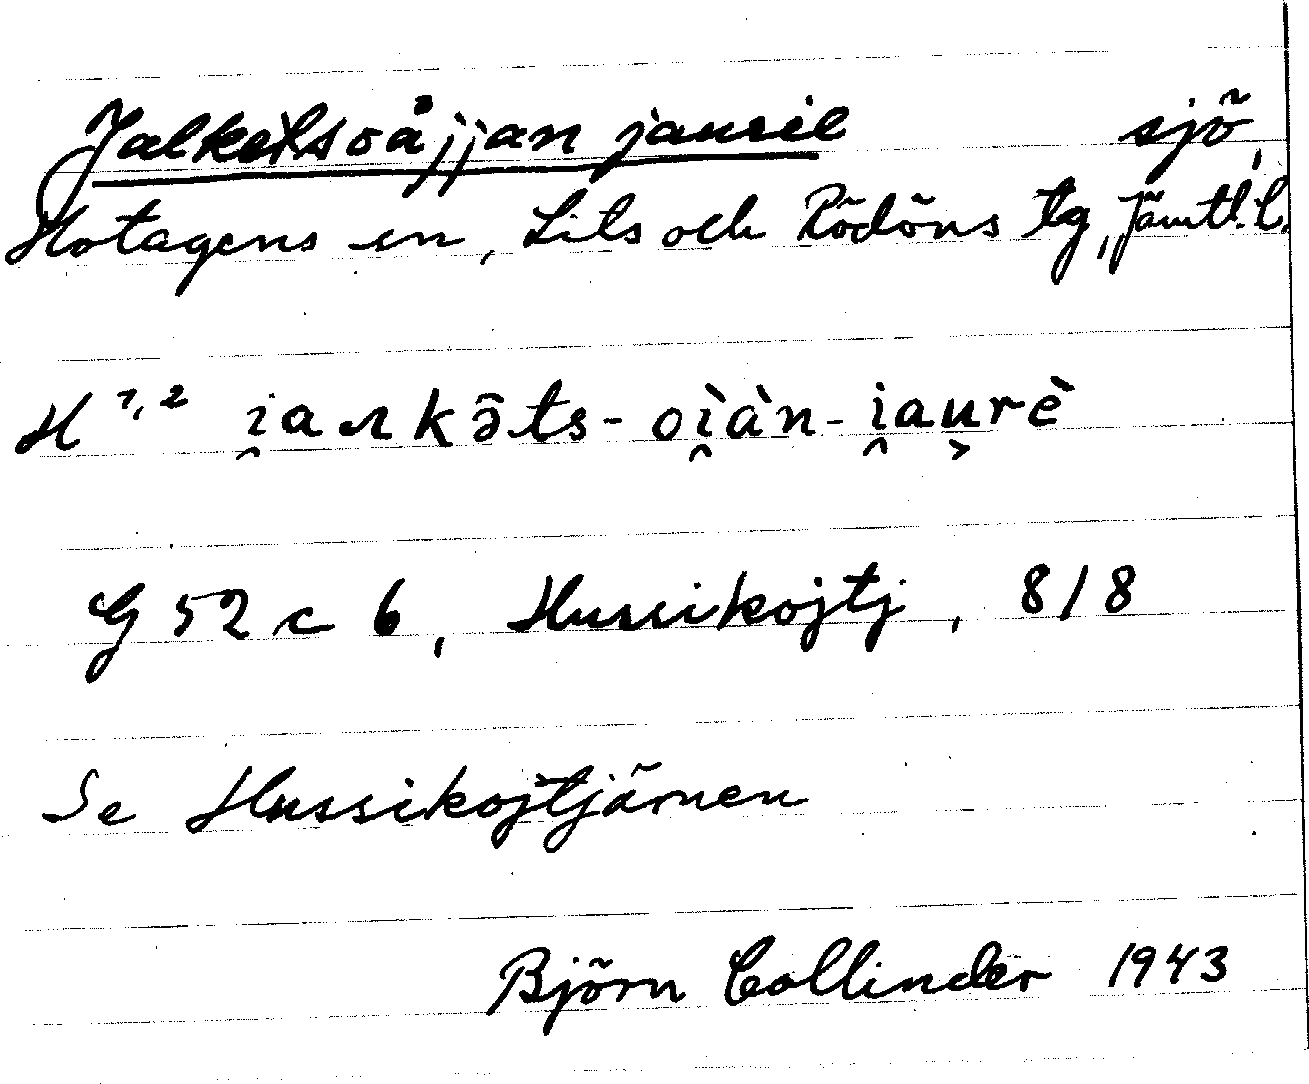 Jalketsoåjjan jaurie sjö,
Hotagens sn, Lits och Rödöns tg, Jämtl. l.
H 1, 2 i̯aʌkə̑ts-oi̯àn-i̯au̯rè
G 52 c 6, Hussikojtj, 8/8
Se Hussikojtjärnen
Björn Collinder 1943